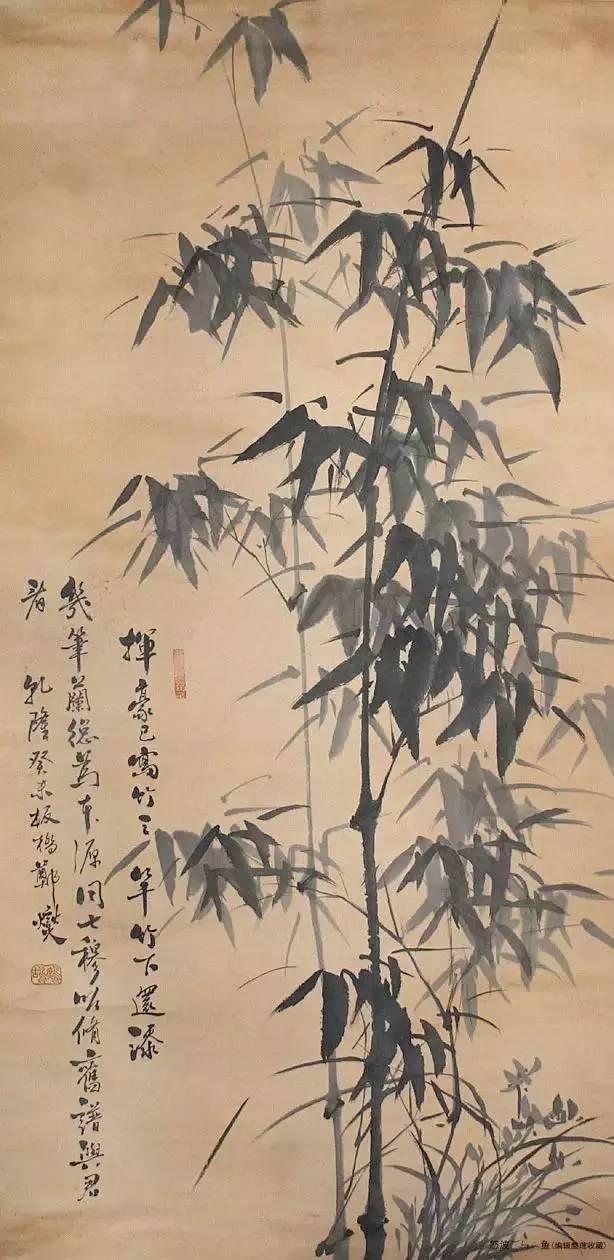 揮豪已寫竹三竿竹下還添
幾筆蘭總為本源同七穆欲修舊譜與君
看 乾隆癸未板橋鄭燮
怒波 鱼(编辑整理收藏)